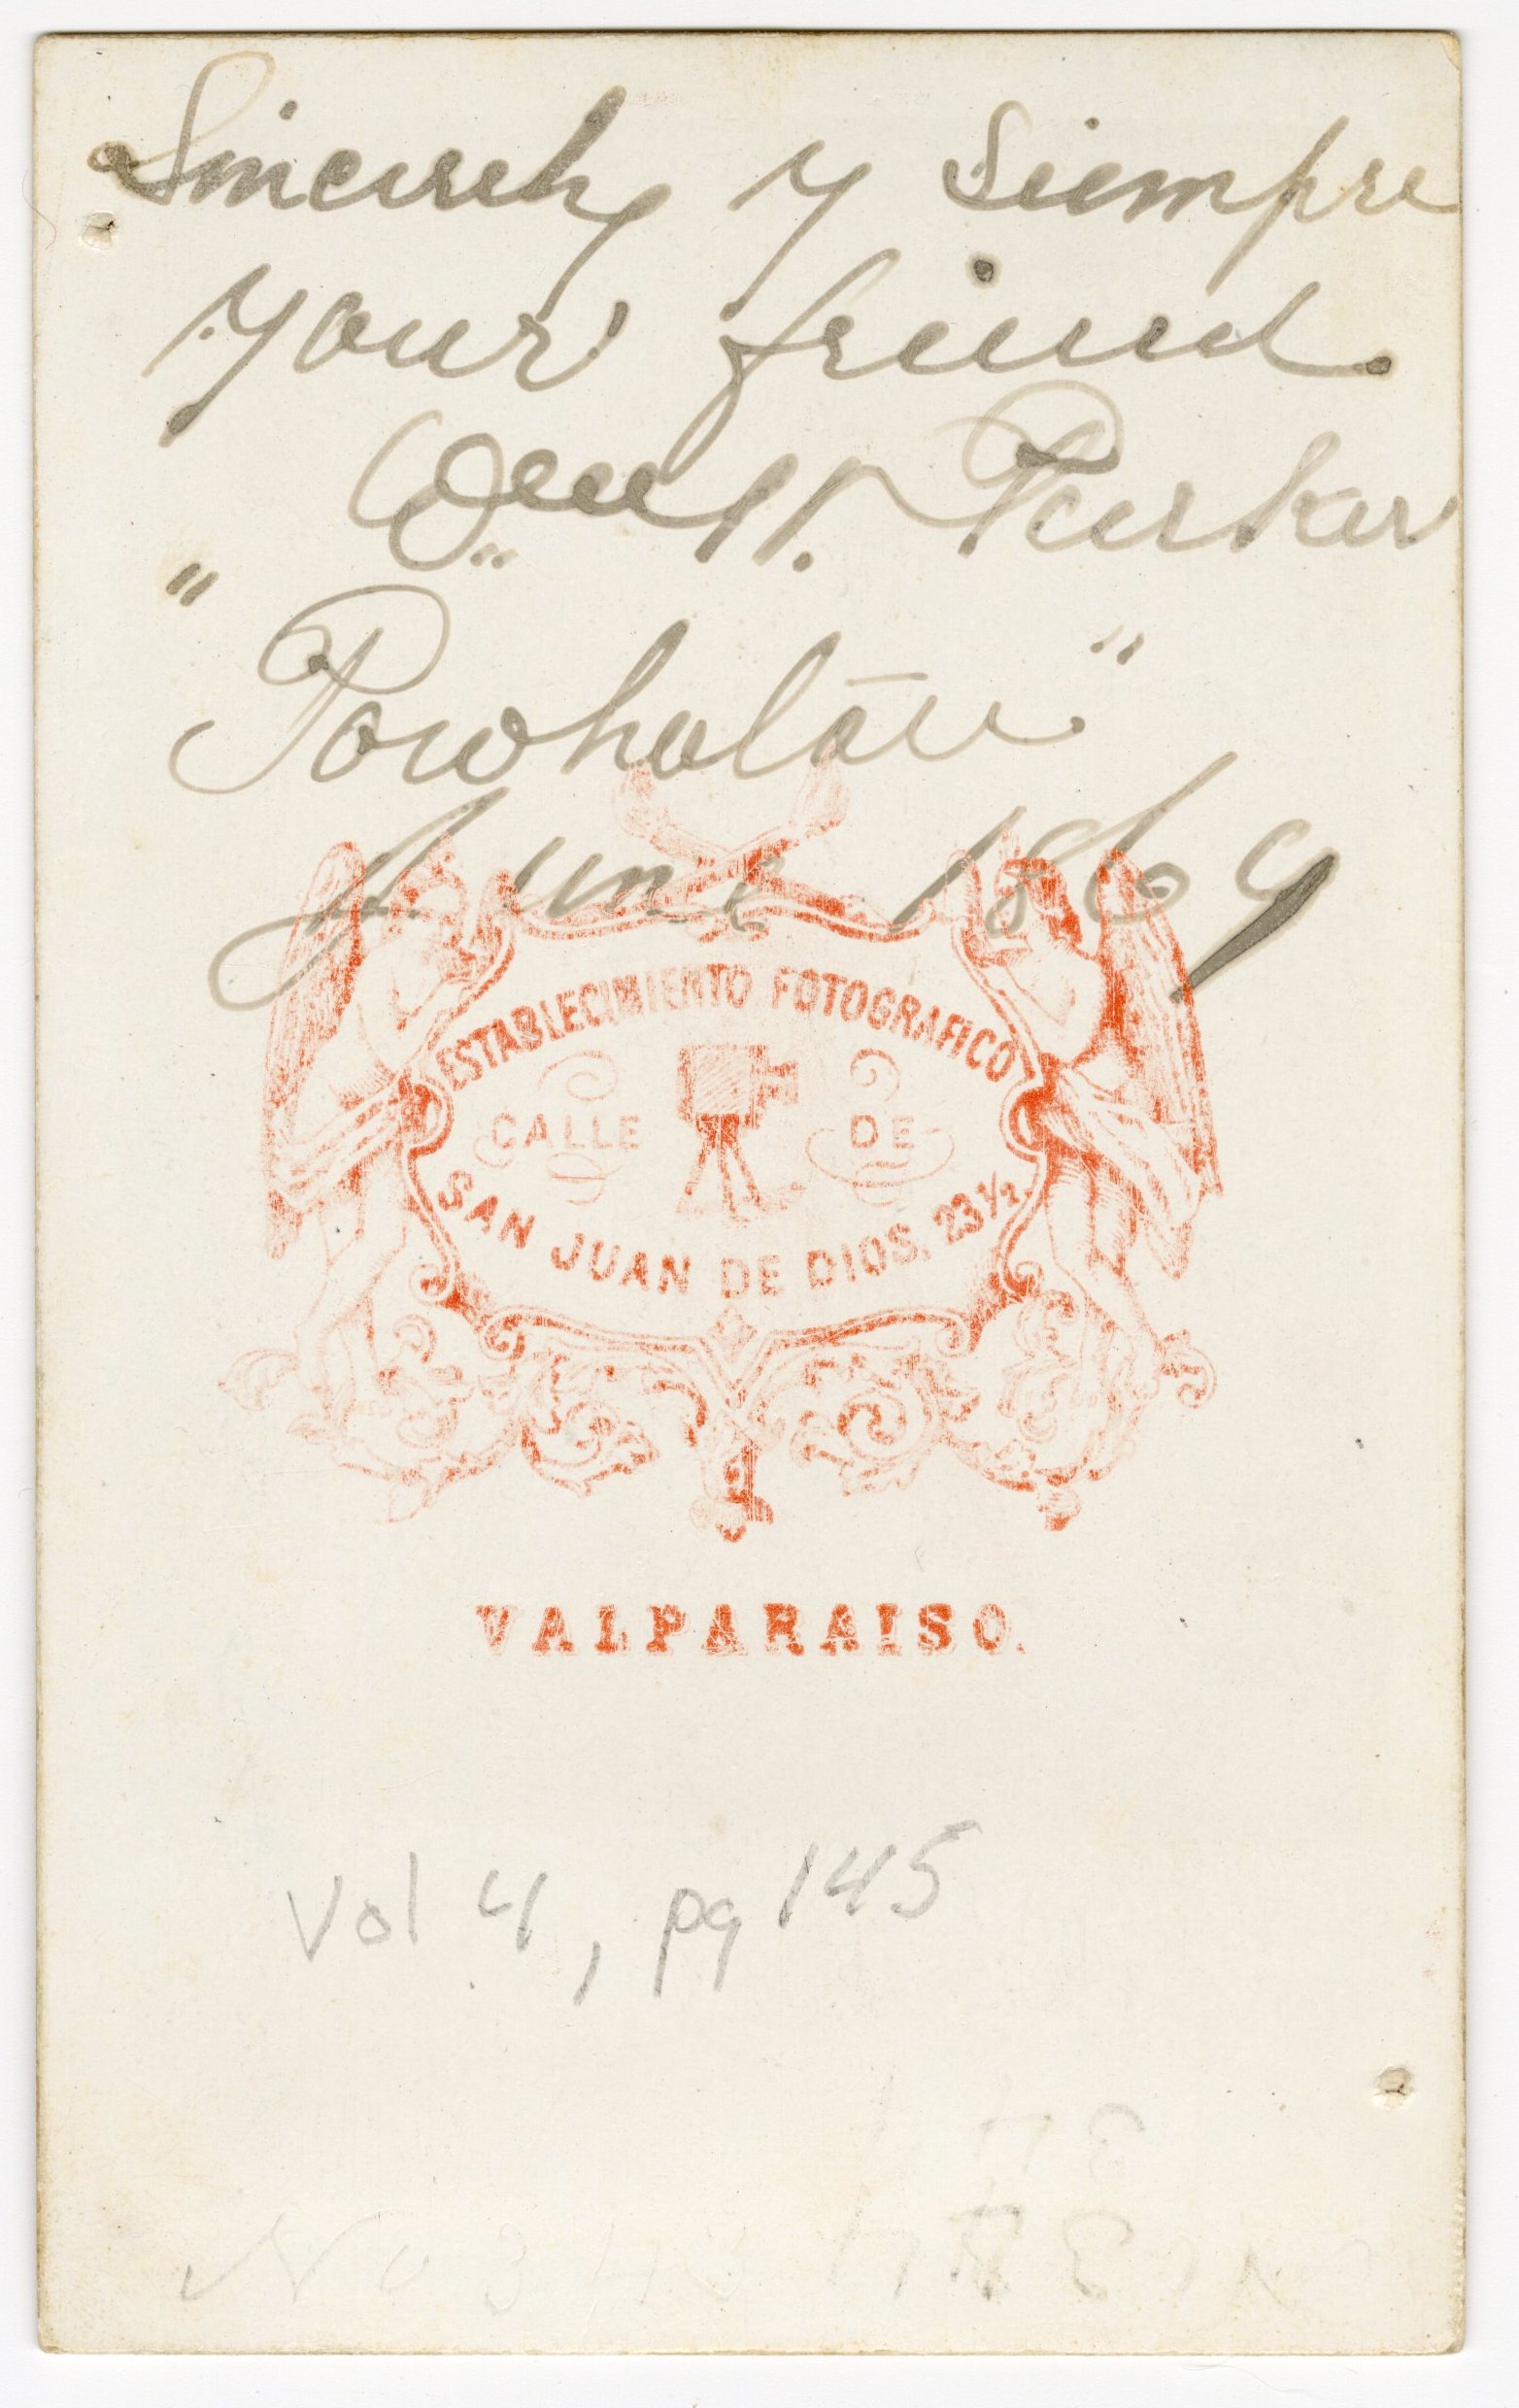 Sincerely y siempre
your friend.
Wm H. Parker
"Powhatan"
June 1869
ESTABLECIMIENTO FOTOGRAFICO
CALLE DE
SAN JUAN DE DIOS, 23 ½.
VALPARAISO.
Vol 4, pg 145